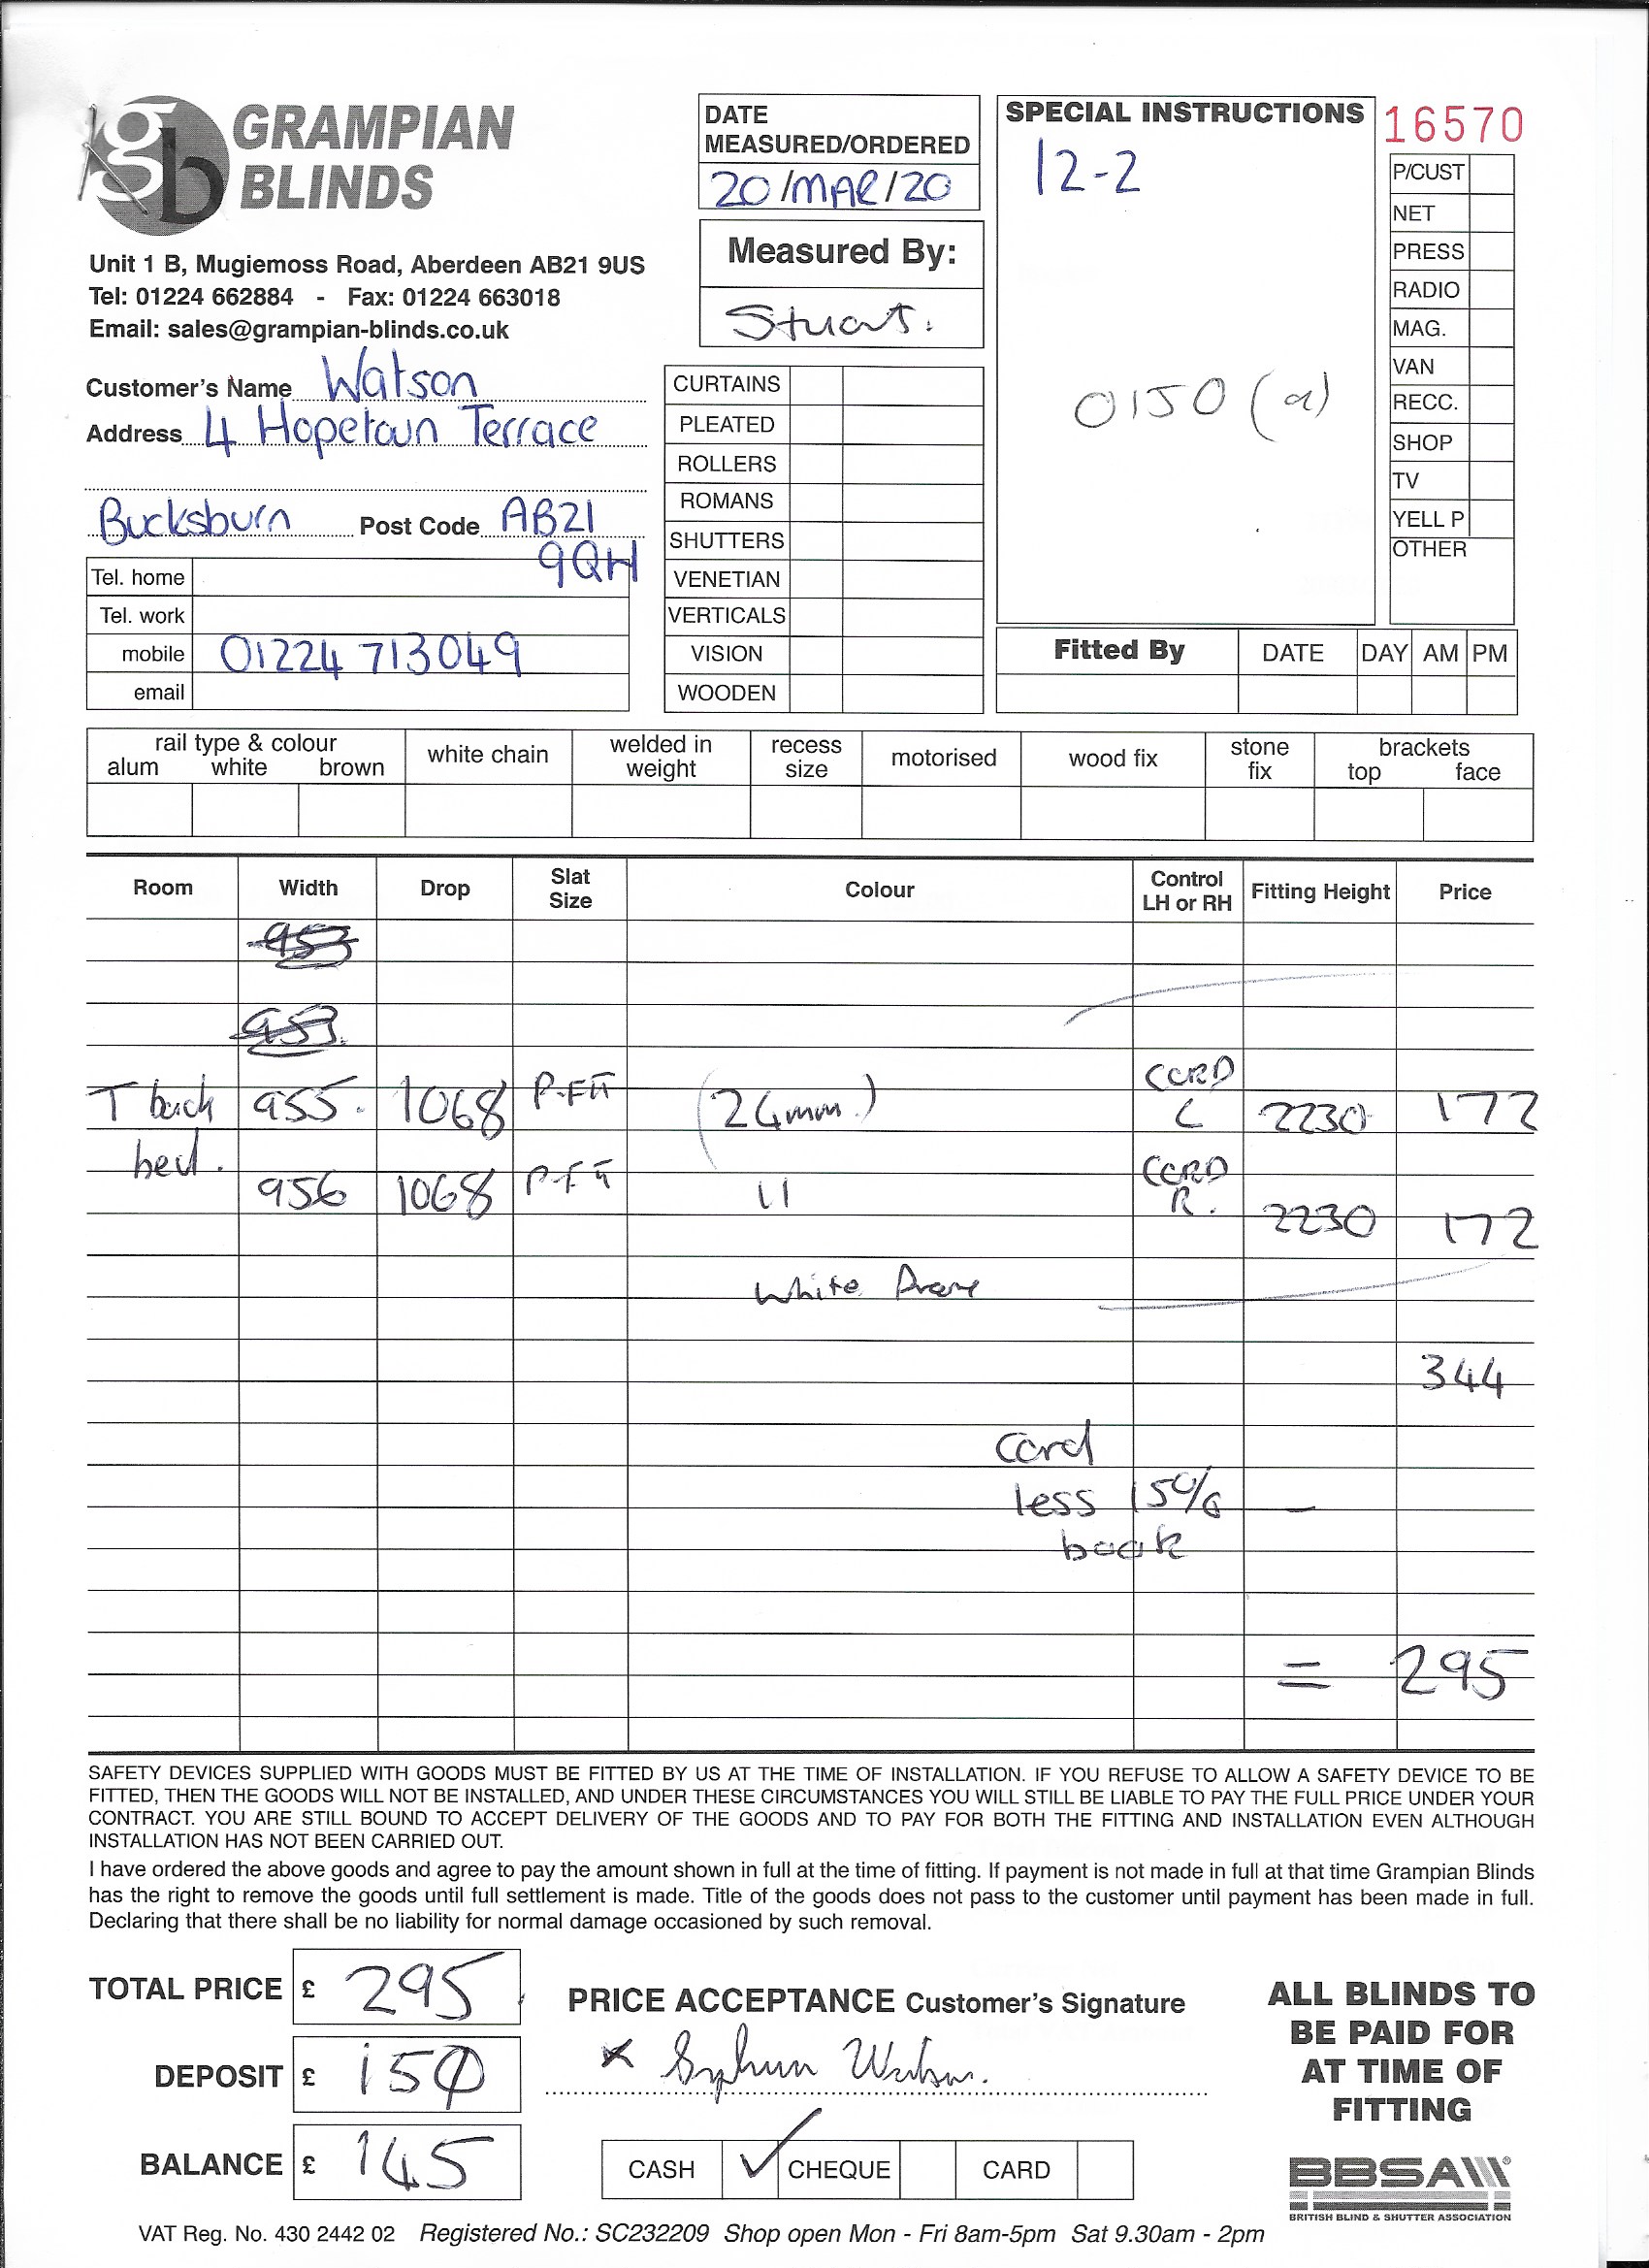 GRAMPIAN
BLINDS
Unit 1 B, Mugiemoss Road, Aberdeen AB21 9US
Tel: 01224 662884 - Fax: 01224 663018
Email: sales@grampian-blinds.co.uk
Customer's Name Watson
Address 4 Hopetoun Terrace
Bucksburn Post Code AB21
9QH
Tel. home
Tel. work
mobile 01224 713049
email
DATE
MEASURED/ORDERED
20/MAR/20
Measured By:
Stuart.
CURTAINS
PLEATED
ROLLERS
ROMANS
SHUTTERS
VENETIAN
VERTICALS
VISION
WOODEN
SPECIAL INSTRUCTIONS
12-2
0150 (a)
16570
P/CUST
NET
PRESS
RADIO
MAG.
VAN
RECC.
SHOP
TV
YELL P
OTHER
Fitted By DATE DAY AM PM
rail type & colour
alum white brown
white chain
welded in
weight
recess
size
motorised
wood fix
stone
fix
brackets
top face
Room Width Drop Slat Size Colour Control LH or RH Fitting Height Price
953
953
T back 955 1068 (24mm) CORD L 2230 172
bed.
956 1068 11 CORD R. 2230 172
White
344
Card
less 15%
book
= 295
SAFETY DEVICES SUPPLIED WITH GOODS MUST BE FITTED BY US AT THE TIME OF INSTALLATION. IF YOU REFUSE TO ALLOW A SAFETY DEVICE TO BE
FITTED, THEN THE GOODS WILL NOT BE INSTALLED, AND UNDER THESE CIRCUMSTANCES YOU WILL STILL BE LIABLE TO PAY THE FULL PRICE UNDER YOUR
CONTRACT. YOU ARE STILL BOUND TO ACCEPT DELIVERY OF THE GOODS AND TO PAY FOR BOTH THE FITTING AND INSTALLATION EVEN ALTHOUGH
INSTALLATION HAS NOT BEEN CARRIED OUT.
I have ordered the above goods and agree to pay the amount shown in full at the time of fitting. If payment is not made in full at that time Grampian Blinds
has the right to remove the goods until full settlement is made. Title of the goods does not pass to the customer until payment has been made in full.
Declaring that there shall be no liability for normal damage occasioned by such removal.
TOTAL PRICE £ 295
DEPOSIT £ 150
BALANCE £ 145
PRICE ACCEPTANCE Customer's Signature
x Watson.
CASH ✓ CHEQUE CARD
ALL BLINDS TO
BE PAID FOR
AT TIME OF
FITTING
BBSA
BRITISH BLIND & SHUTTER ASSOCIATION
VAT Reg. No. 430 2442 02 Registered No.: SC232209 Shop open Mon - Fri 8am-5pm Sat 9.30am - 2pm